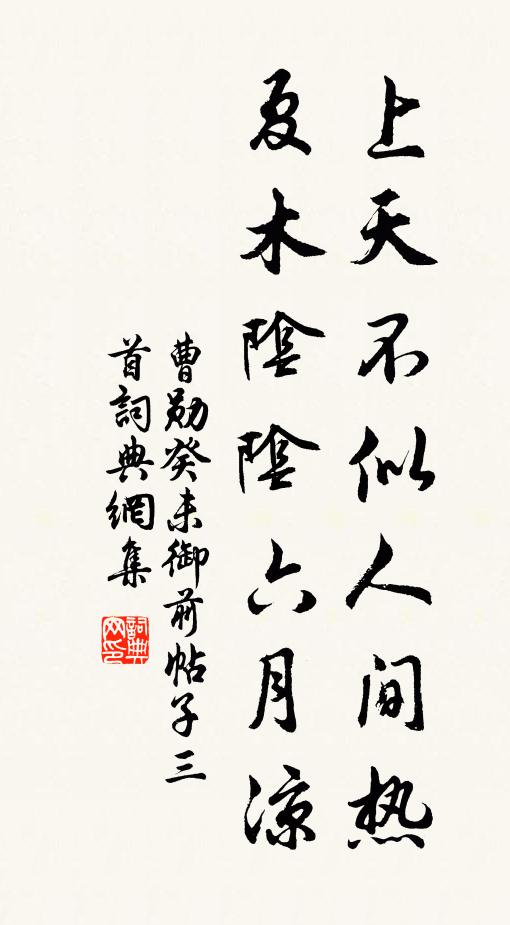 上天不似人间热
夏木陰陰六月涼
曹勛癸未御前帖子三
首詞典網集
詞典
网印